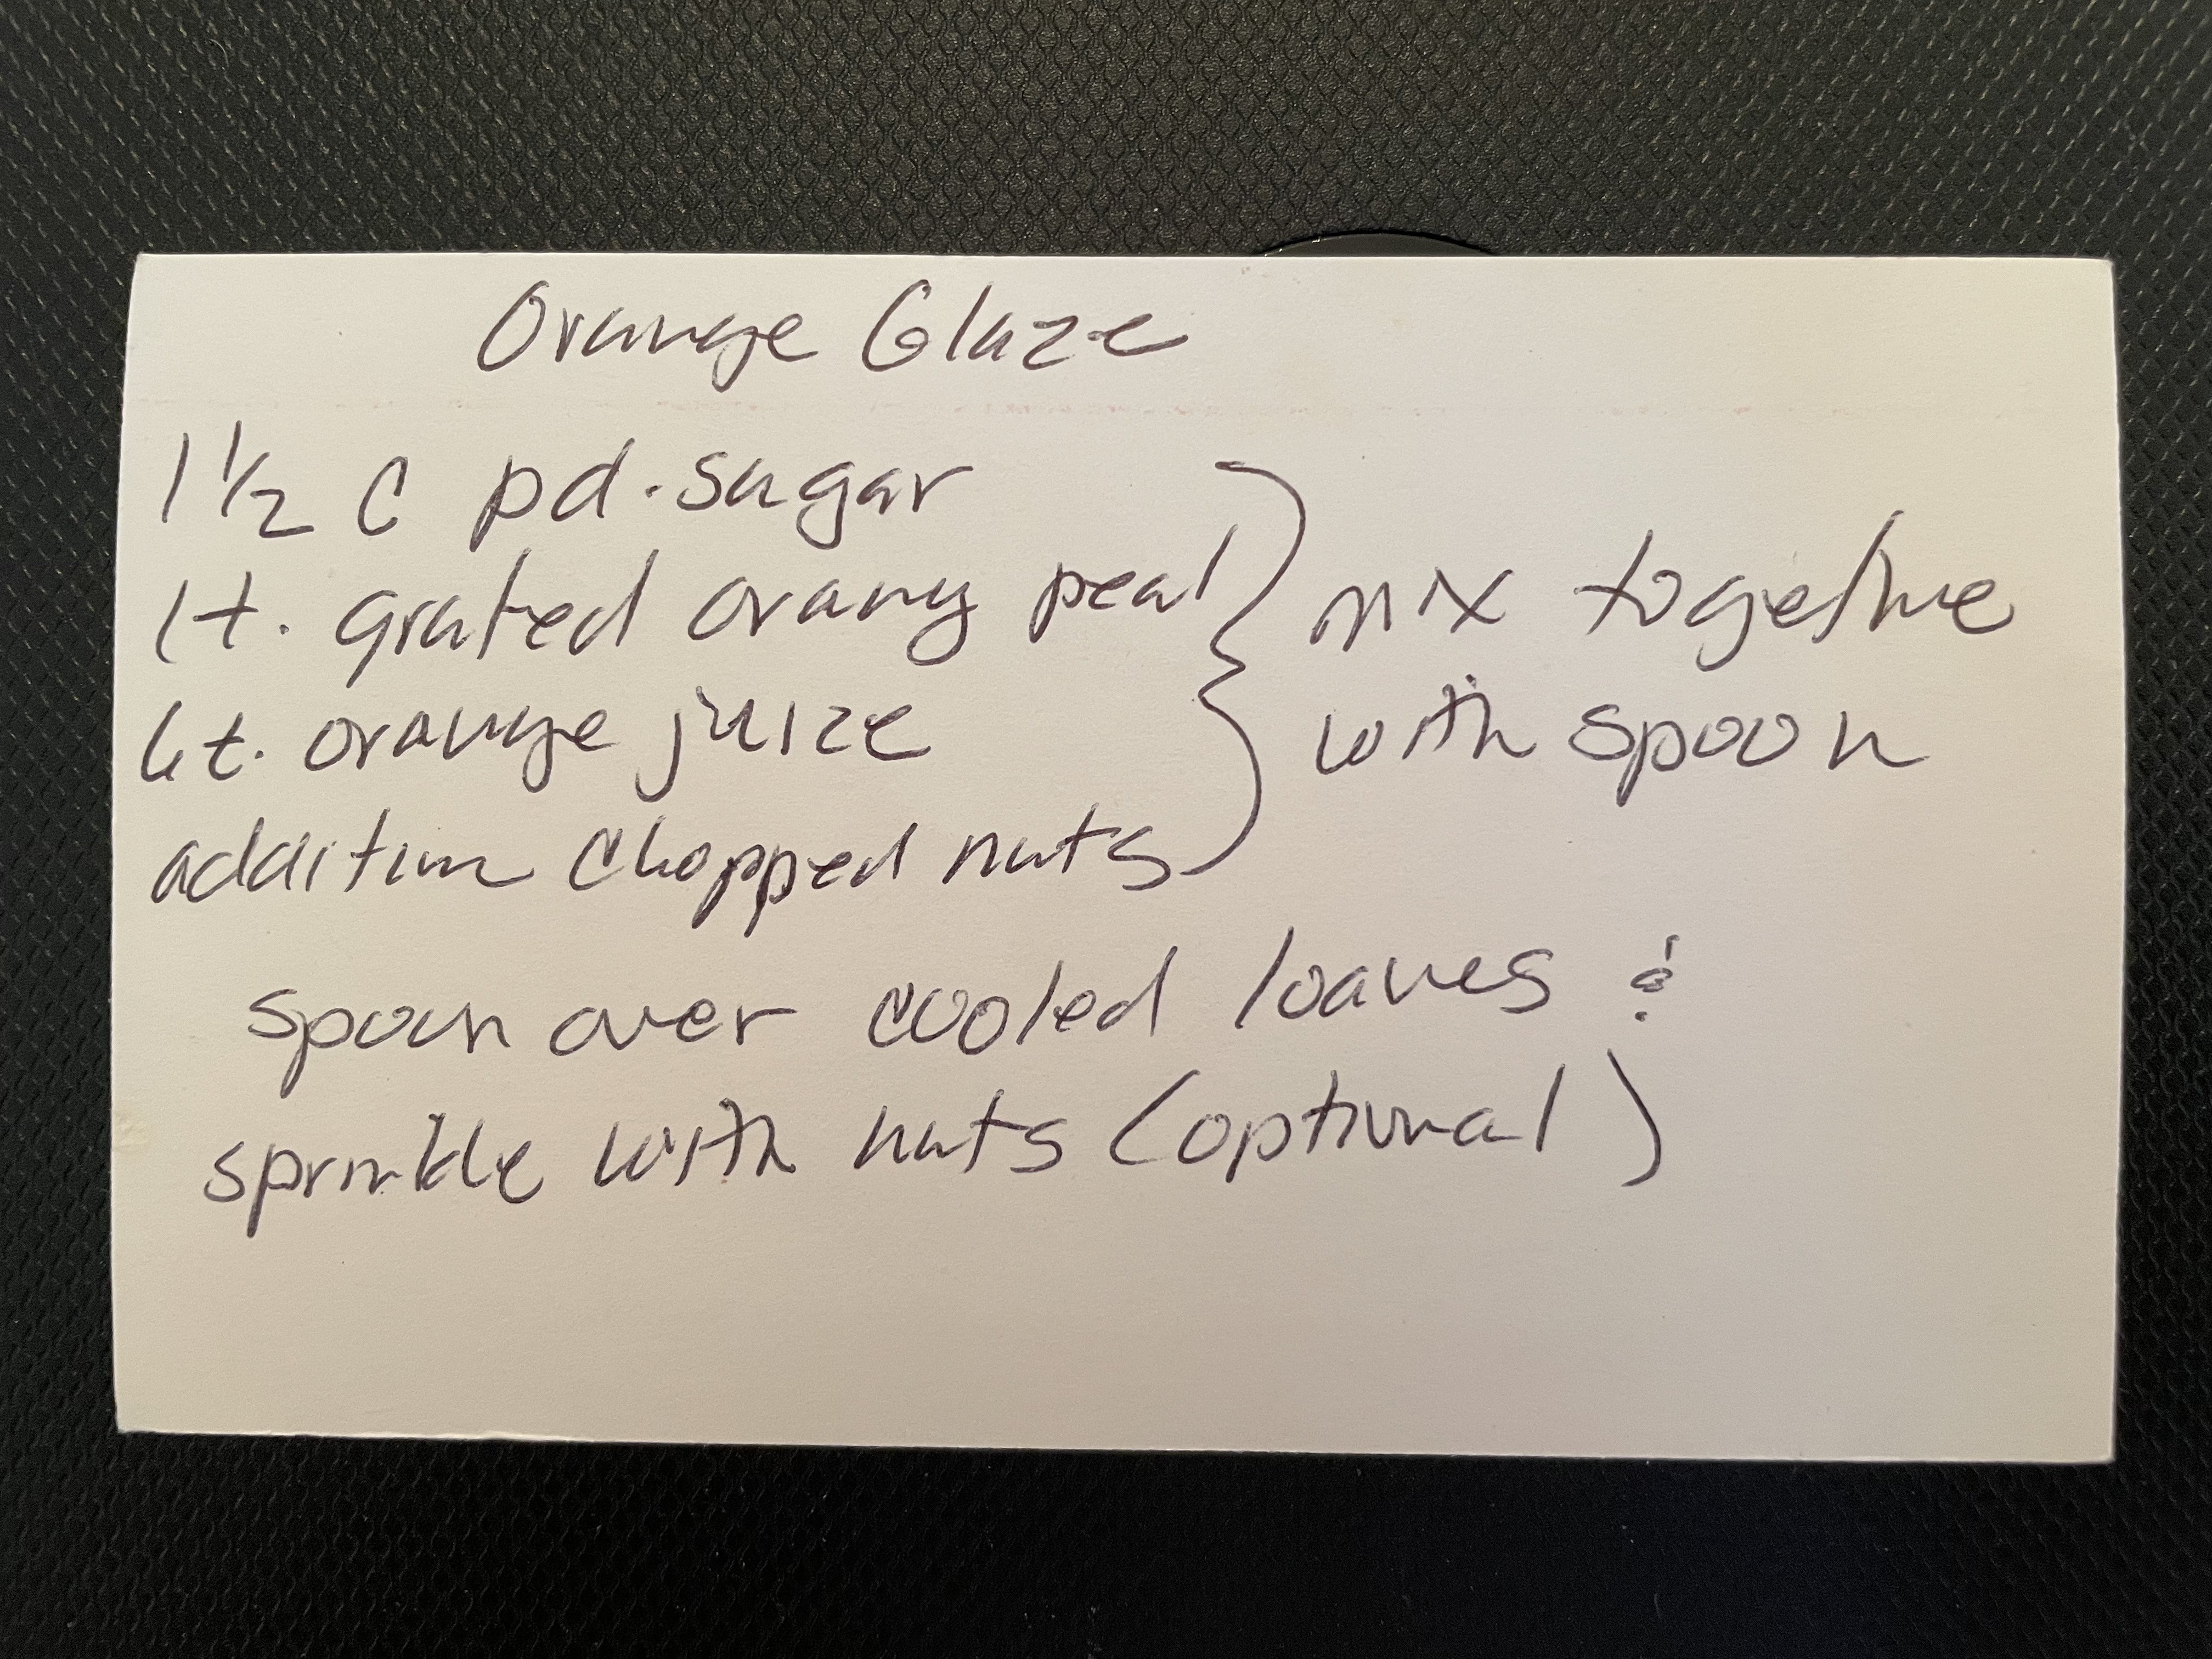 Orange Glaze
1 1/2 C pd. sugar
1t. grated orang peal
6t. orange juice
addition chopped nuts
mix together
with spoon
spoon over cooled loaves &
sprinkle with nuts (optional)